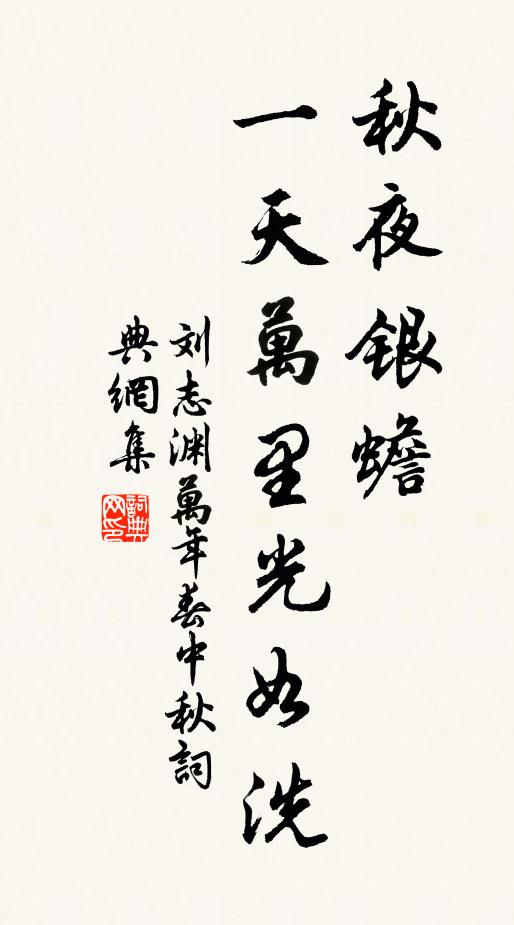 秋夜銀蟾
一天萬里光如洗
刘志渊萬年春中秋詞
典網集
詞典网印